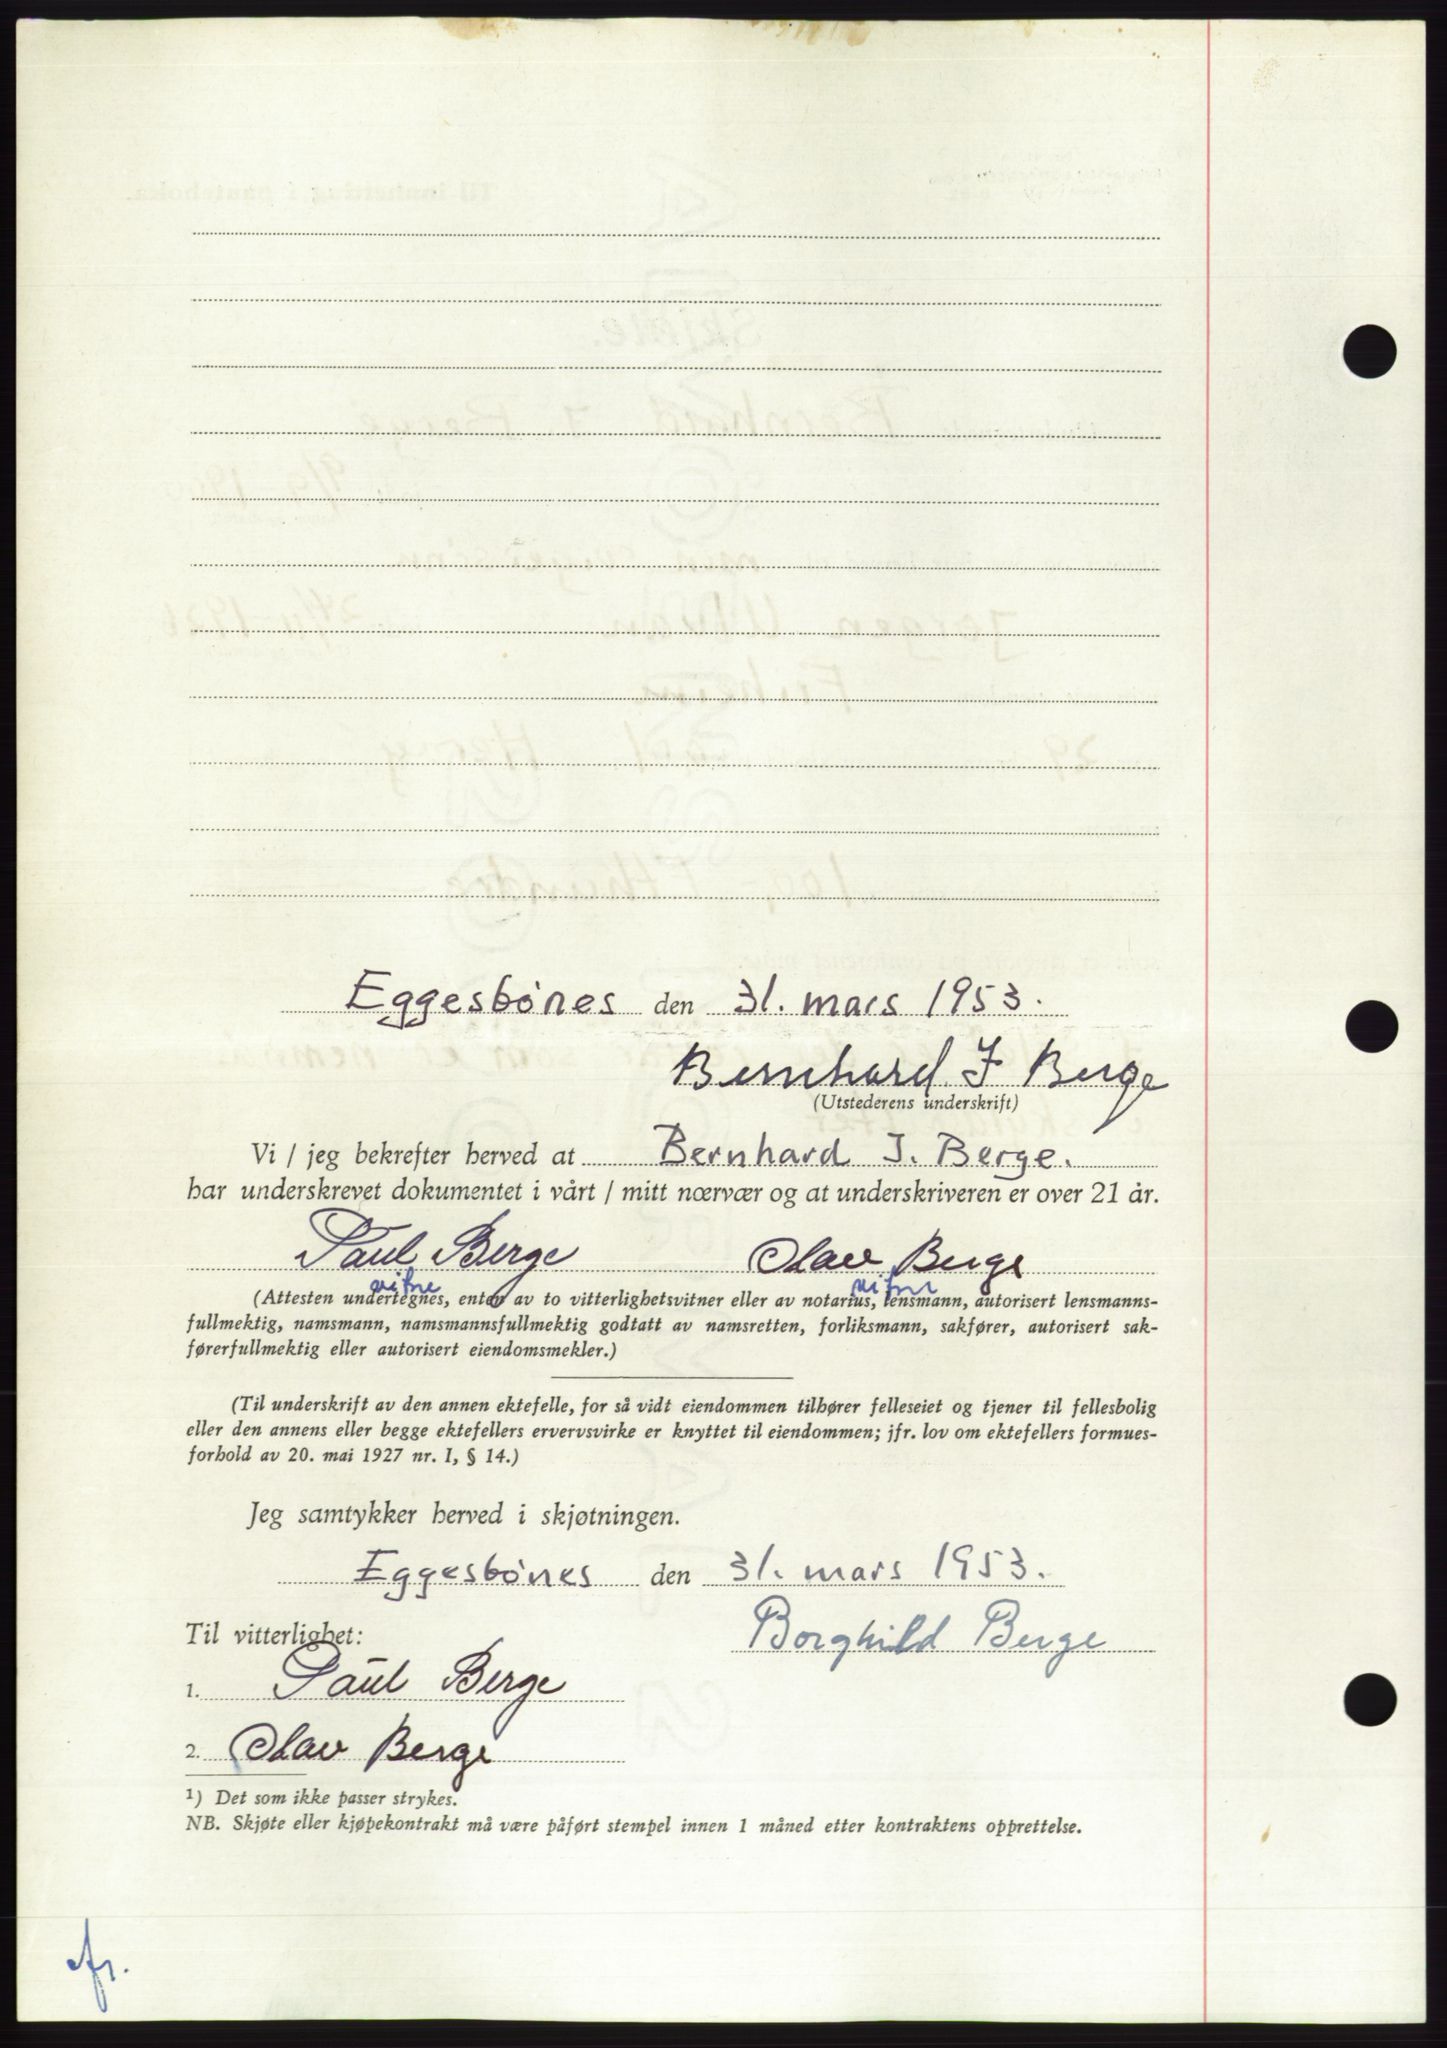 Eggesbönes den 31. mars 1953.
Bernhard J Berge
(Utstederens underskrift)
Vi / jeg bekrefter herved at Bernhard J. Berge.
har underskrevet dokumentet i vårt / mitt nærvær og at underskriveren er over 21 år.
Paul Berge Olav Berge
vitne vitne
(Attesten undertegnes, enten av to vitterlighetsvitner eller av notarius, lensmann, autorisert lensmanns-
fullmektig, namsmann, namsmannsfullmektig godtatt av namsretten, forliksmann, sakfører, autorisert sak-
førerfullmektig eller autorisert eiendomsmekler.)
(Til underskrift av den annen ektefelle, for så vidt eiendommen tilhører felleseiet og tjener til fellesbolig
eller den annens eller begge ektefellers ervervsvirke er knyttet til eiendommen; jfr. lov om ektefellers formues-
forhold av 20. mai 1927 nr. 1, § 14.)
Jeg samtykker herved i skjøtningen.
Eggesbönes den 31. mars 1953.
Til vitterlighet:
Borghild Berge
1. Paul Berge
2. Olav Berge
1) Det som ikke passer strykes.
NB. Skjøte eller kjøpekontrakt må være påført stempel innen 1 måned etter kontraktens opprettelse.